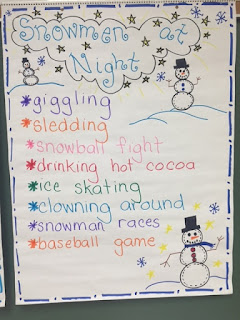 Snowmen at
Night
*giggling
*sledding
*snowball fight
*drinking hot cocoa
*ice skating
*clowning around
*snowman races
*baseball game